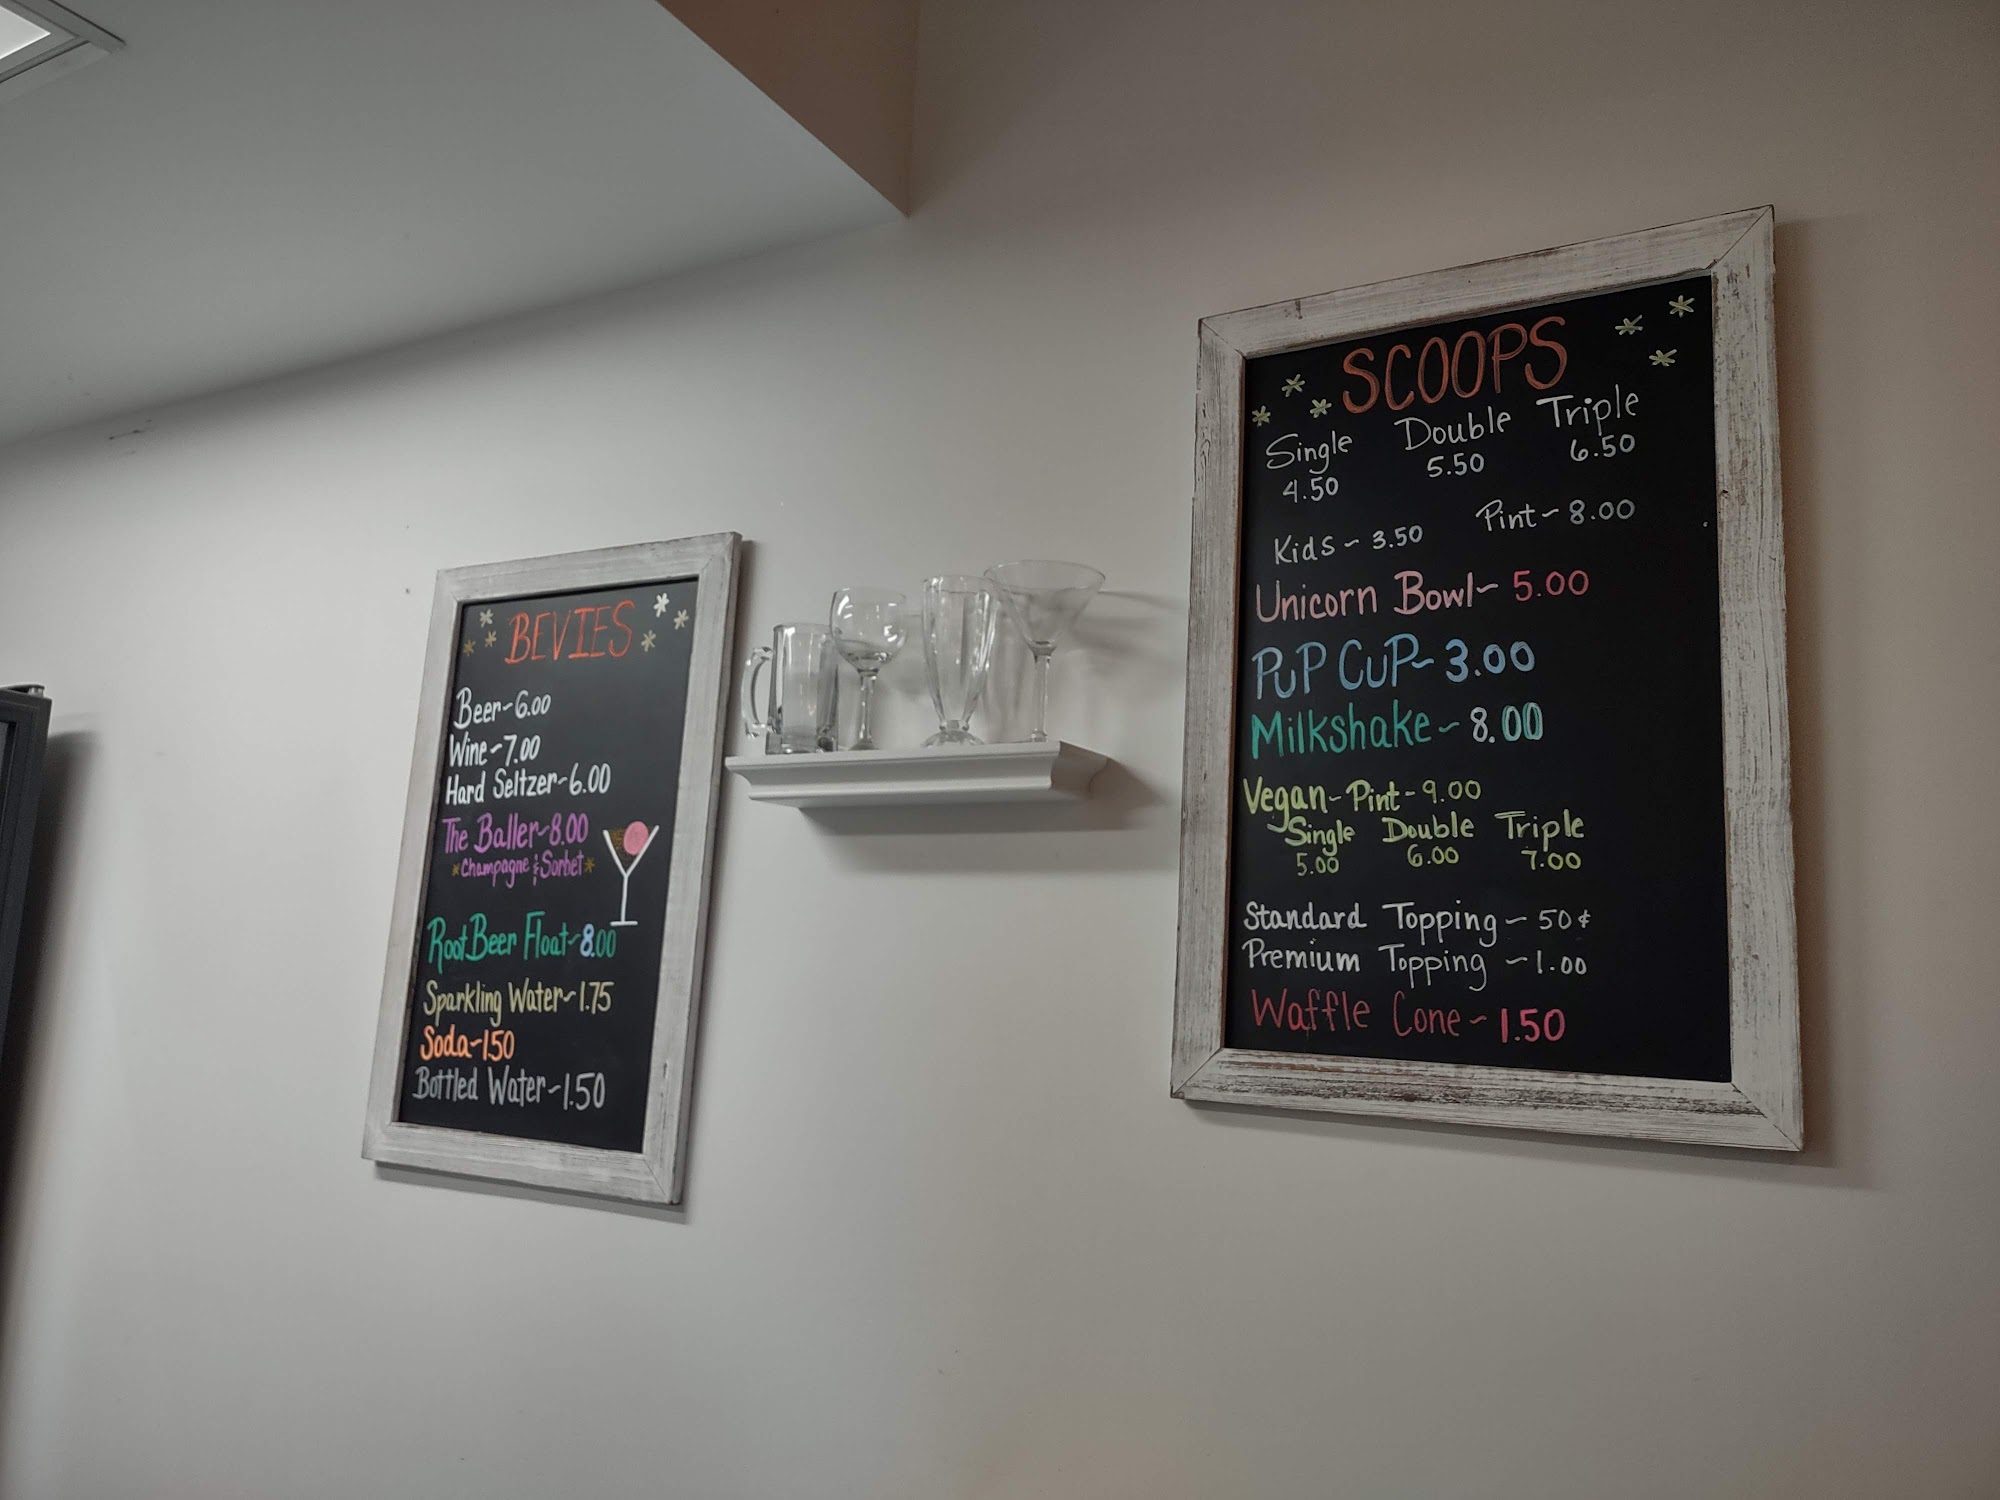 BEVIES
Beer~6.00
Wine~7.00
Hard Seltzer~6.00
The Baller~8.00
*Champagne & Sorbet*
Root Beer Float~8.00
Sparkling Water~1.75
Soda~1.50
Bottled Water~1.50
SCOOPS
Single Double Triple
4.50 5.50 6.50
Kids~3.50 Pint~8.00
Unicorn Bowl~5.00
PUP CUP~3.00
Milkshake~8.00
Vegan-Pint-9.00
Single Double Triple
5.00 6.00 7.00
Standard Topping~50¢
Premium Topping~1.00
Waffle Cone~1.50